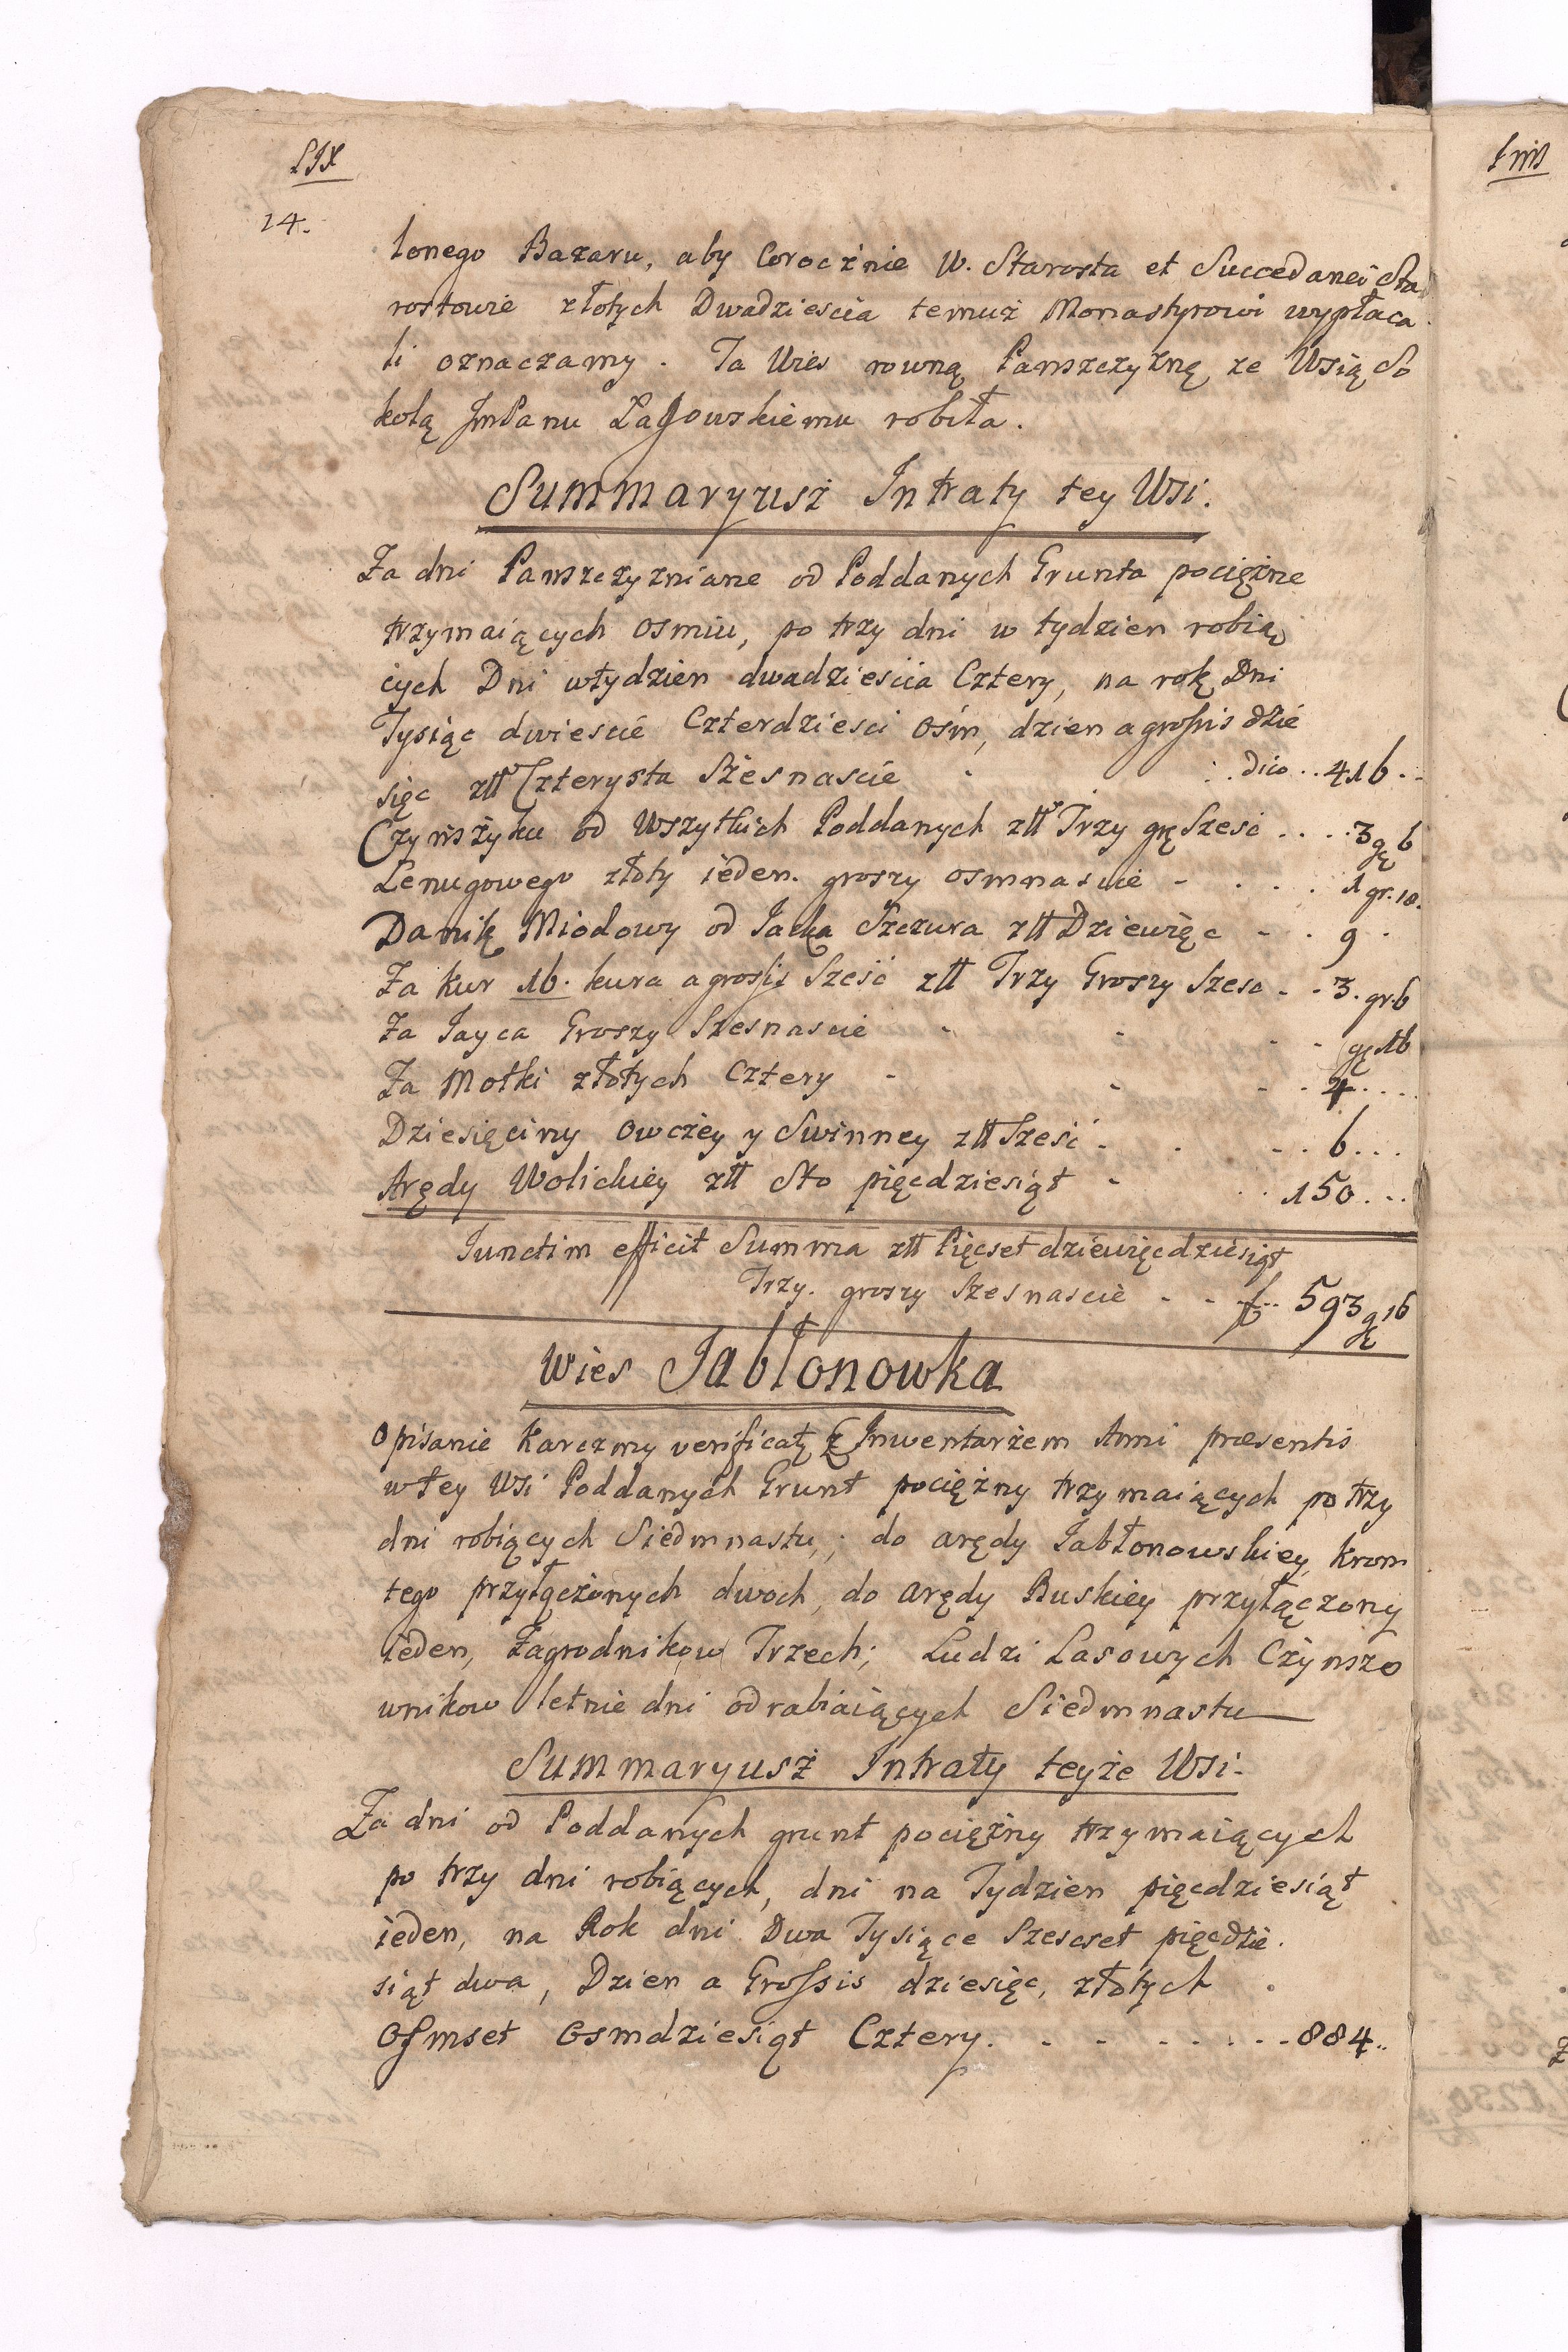 LIX
14.
lonego Bazaru, aby Corocznie W. Starosta et Succedanei Sta
rostowie złotych Dwadziescia temuż Monastyrowi wypłaca
li oznaczamy. Ta Wies rowną Panszczyzną ze Wsią So
kolą JmPanu Łagowskiemu robiła.
Summaryusż Intraty tey Wsi.
Za dni Panszczyzniane od Poddanych Grunta pociężne
trzymaiących osmiu, po trzy dni w tydzien robią
cych Dni wtydzien dwadziescia Cztery, na rok Dni
Tysiąc dwiescie Czterdziesci ośm, dzien a grossis dzie
sięc złł Czterysta Szesnascie dico 416
Czynszyku od Wszytkich Poddanych złł Trzy gr Szesc 3 gr 6
Lenugowego złoty ieden. groszy osmnascie 1 gr. 18.
Danik Miodowy od Jacka Szczura złł Dziewięc 9
Za kur 16. kura a grossis Sześć złł Trzy Groszy Szesc 3. gr 6
Za Jayca Groszy Szesnascie gr 16
Za Motki złotych Cztery 4
Dziesięciny owczey y Swinney złł Sześć 6
Arędy Wolickiey złł Sto pięcdziesiąt 150
Junctim efficit Summa złł Pięcset dziewięcdziesiąt
Trzy. groszy Szesnascie f 593 gr 16
Wies Jabłonowka
Opisanie Karczmy verificatę z Inwentarżem Anni præsentis
wtey Wsi Poddanych Grunt pociężny trzymaiących po trzy
dni robiących Siedmnastu; do arędy Jabłonowskiey krom
tego przyłączonych dwoch, do arędy Buskiey przyłączony
ieden, Zagrodnikow Trzech; Ludzi Lasowych Czynszo
wnikow letnie dni odrabiaiących Siedmnastu
Summaryusż Intraty teyże Wsi.
Za dni od Poddanych grunt pociężny trzymaiących
po trzy dni robiących, dni na Tydzien pięcdziesiąt
ieden, na Rok dni Dwa Tysiące Szescset pięcdzie.
siąt dwa, Dzien a Grossis dziesięc, złotych
Osmset Osmdziesiąt Cztery. 884